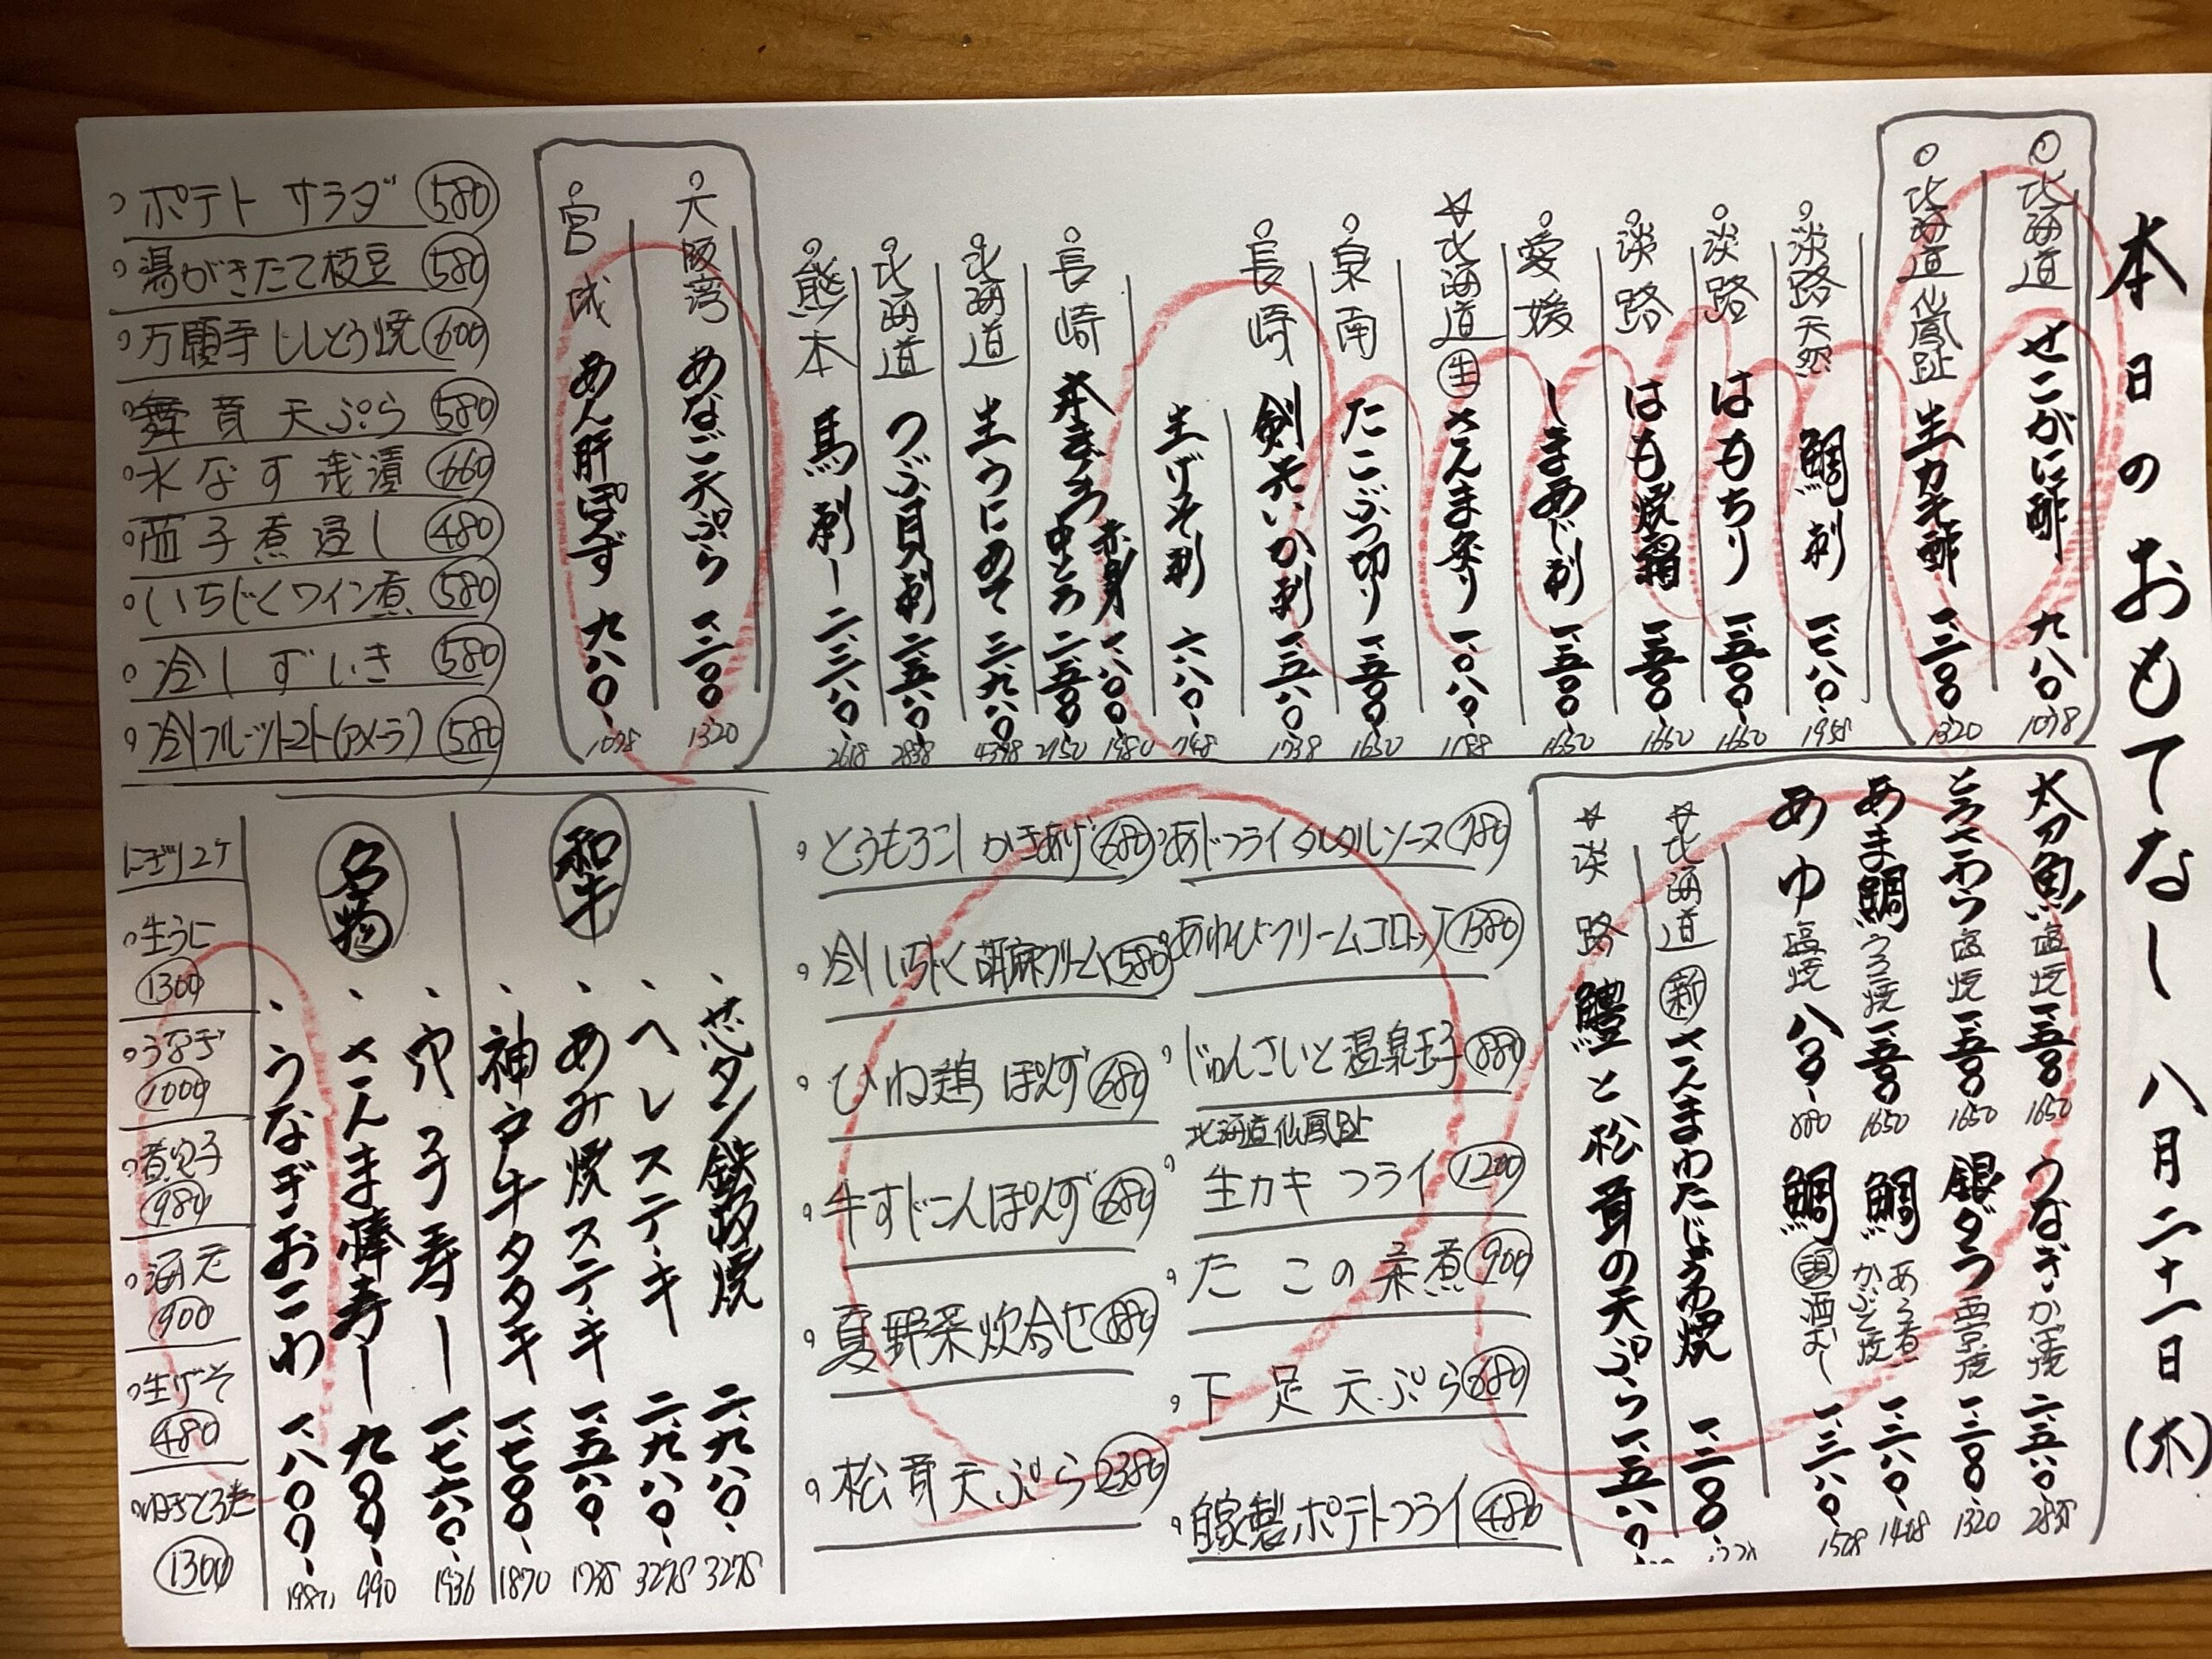 本日のおもてなし 八月二十一日(木)
北海道 せこがに酢 九八〇 1078
北海道 仙鳳趾 生カキ酢 一、二〇〇 1320
淡路 天然 鯛刺 一、七八〇 1958
淡路 はもちり 一、五〇〇 1650
淡路 はも焼霜 一、五〇〇 1650
愛媛 しまあじ刺 一、五〇〇 1650
☆北海道 生 さんま炙り 一、〇八〇 1188
泉南 たこぶつ切り 一、五〇〇 1650
長崎 剣先いか刺 一、五八〇 1738
生げそ刺 六八〇 748
長崎 本まぐろ 赤身 一、八〇〇 1980
中とろ 二、五〇〇 2750
北海道 生うにあて 三、九八〇 4378
北海道 つぶ貝刺 二、五八〇 2838
熊本 馬刺し 二、三八〇 2618
大阪湾 あなご天ぷら 一、二〇〇 1320
宮城 あん肝ぽんず 九八〇 1078
ポテトサラダ 580
湯がきたて枝豆 580
万願寺ししとう焼 600
舞茸天ぷら 580
水なす浅漬 660
茄子煮浸し 480
いちじくワイン煮 580
冷しずいき 580
冷しフルーツトマト(アメーラ) 580
太刀魚 塩焼 一、五〇〇 1650
うなぎ かば焼 二、五八〇 2838
とろさわら 塩焼 一、五〇〇 1650
銀ダラ 西京焼 一、二〇〇 1320
あま鯛 うろこ焼 一、五〇〇 1650
鯛 あら煮 かぶと焼 一、二八〇 1408
あゆ 塩焼 八〇〇 880
鯛 頭 酒むし 一、三八〇 1518
☆北海道 新 さんまわたじょうゆ焼 一、二〇〇
☆淡路 鱧と松茸の天ぷら 一、五八〇
あじフライタルタルソース 780
あわびクリームコロッケ 1380
じゅんさいと温泉玉子 880
北海道仙鳳趾
生カキフライ 1200
たこの柔煮 900
下足天ぷら 680
自家製ポテトフライ 480
とうもろこしかきあげ 680
冷しいちじく胡麻クリーム 580
ひね鶏ぽんず 680
牛すじこんぽんず 680
夏野菜炊合せ 880
松茸天ぷら 2380
和牛
芯タン鉄板焼 二、九八〇 3278
ヘレステーキ 二、九八〇 3278
あみ焼ステーキ 一、五八〇 1738
神戸牛タタキ 一、七〇〇 1870
名物
穴子寿し 一、七六〇 1936
さんま棒寿し 九〇〇 990
うなぎおこわ 一、八〇〇 1980
にぎり2ケ
生うに 1300
うなぎ 1000
煮穴子 980
海老 900
生げそ 480
ねぎとろ 1300